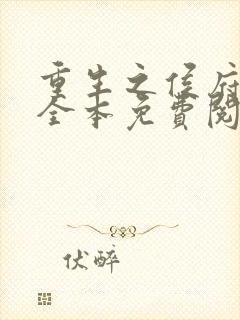 重生之侯府
全本免費閱
伏醉